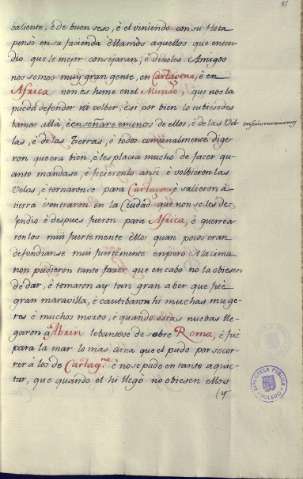 valiente, é de buen seso, é el viniendo con su flota
pensó en su facienda é llamó aquellos que enten-
dio que le mejor consejaran, é dixoles Amigos
nos somos muy gran gente, en Cartagena, é en
Africa non es home en el Mundo, que nos la
pueda defender
tomar allá, é
las, é de las tierras, é todos comunalmente dige-
ron que era bien, é les placia mucho de facer quan-
to mandase, é ficieronlo ansi é volbieron las
Velas, é tornaronse para Cartagena é salieron á
tierra é entraron en la Ciudad que non se les de-
fendio é despues fueron para Africa, é guerrea-
ronlos mui fuertemente é ellos quan pocos eran
defendianse mui fuertemente empero
non pudieron tanto facer que en cabo no la obiesen
de dar, é tomaron ay tan gran aber que fué
gran maravilla, é cautibaron hi muchas muge-
res é muchos mozos, é quando estas nuebas lle-
garon á levantose de sobre Roma, é fué
para la mar lo mas aina que el pudo por socor-
rer á los de Cartagena é no se pudo en tanto aguci-
tar, que quando el hi llegó no obiesen ellos